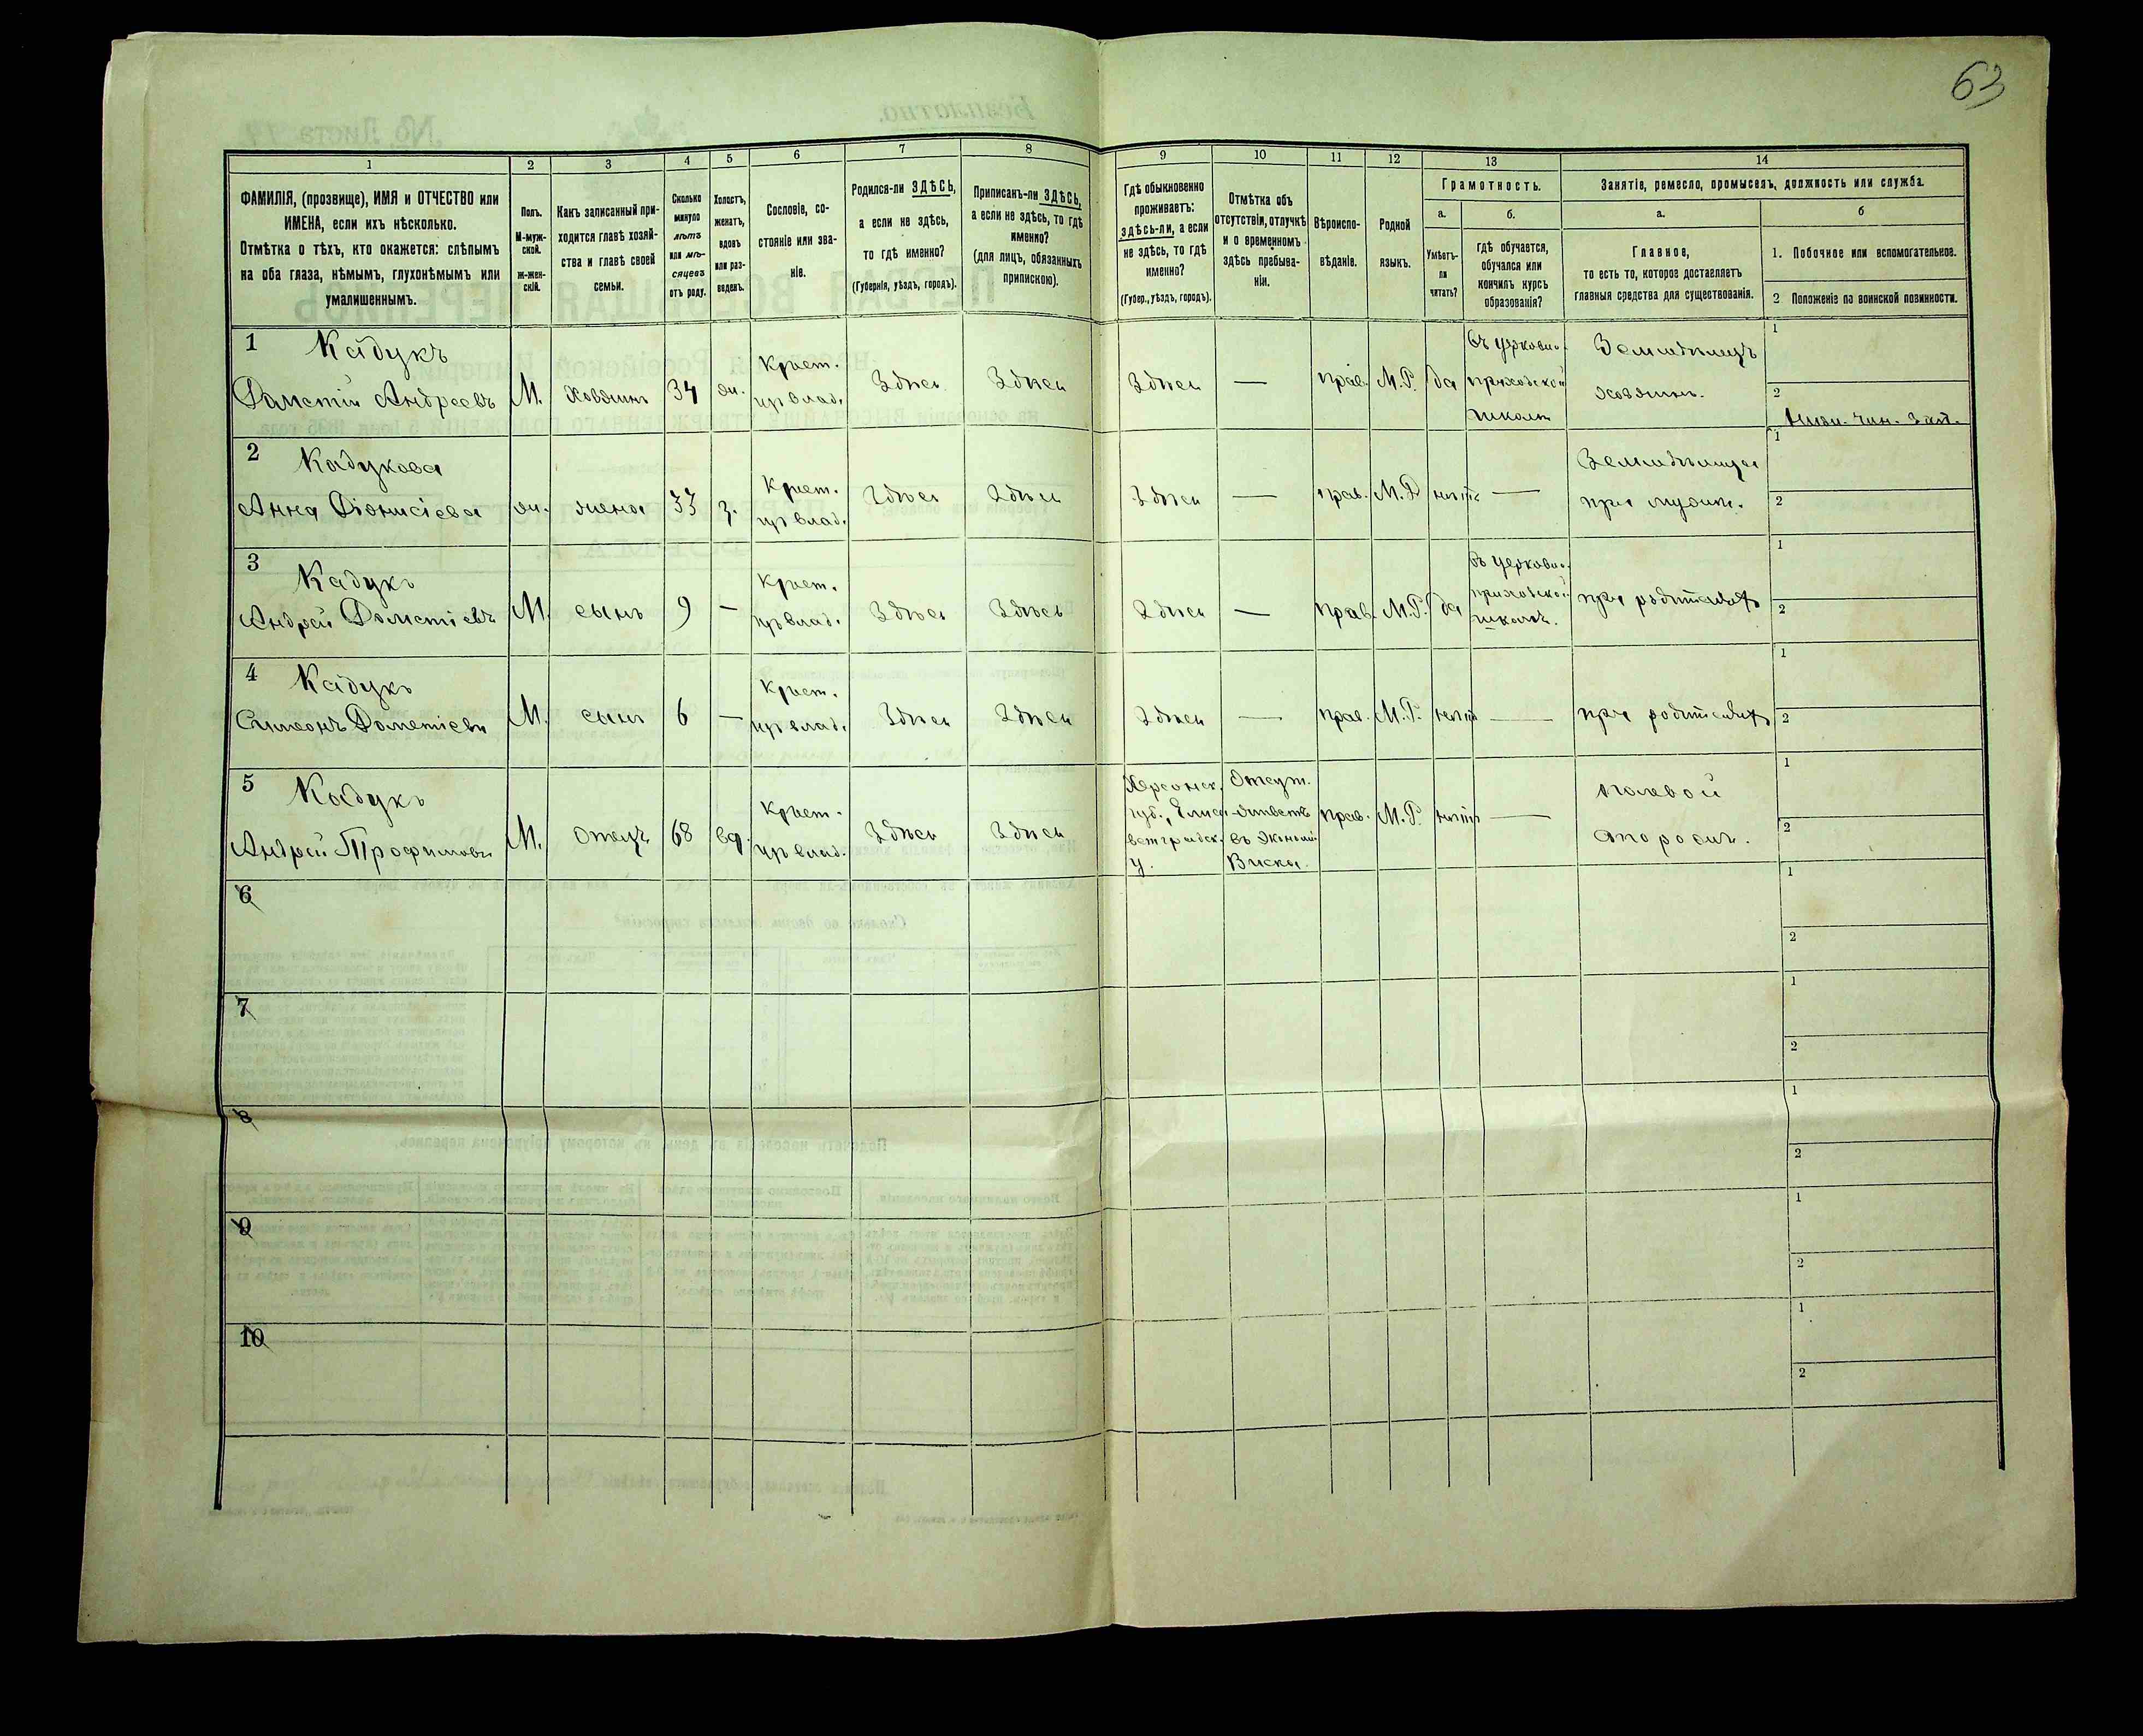 63
1
2
3
4
5
6
7
8
9
10
11
12
13
14
ФАМИЛІЯ, (прозвище), ИМЯ и ОТЧЕСТВО или
ИМЕНА, если ихъ нѣсколько.
Отмѣтка о тѣхъ, кто окажется: слѣпымъ
на оба глаза, нѣмымъ, глухонѣмымъ или
умалишеннымъ.
Полъ.
М-муж-
ской.
ж-жен-
скій.
Какъ записанный при-
ходится главѣ хозяй-
ства и главѣ своей
семьи.
Сколько
минуло
лѣтъ
или мѣ-
сяцевъ
отъ роду.
Холостъ,
женатъ,
вдовъ
или раз-
веденъ.
Сословіе, со-
стояніе или зва-
ніе.
Родился-ли ЗДѢСЬ,
а если не здѣсь,
то гдѣ именно?
(Губернія, уѣздъ, городъ).
Приписанъ-ли ЗДѢСЬ,
а если не здѣсь, то гдѣ
именно?
(для лицъ, обязанныхъ
припискою).
Гдѣ обыкновенно
проживаетъ:
здѣсь-ли, а если
не здѣсь, то гдѣ
именно?
(Губер., уѣздъ, городъ).
Отмѣтка объ
отсутствіи, отлучкѣ
и о временномъ
здѣсь пребыва-
ніи.
Вѣроиспо-
вѣданіе.
Родной
языкъ.
Грамотность.
а.
Умѣетъ-
ли
читать?
б.
гдѣ обучается,
обучался или
кончилъ курсъ
образованія?
Занятіе, ремесло, промыселъ, должность или служба.
а.
Главное,
то есть то, которое доставляетъ
главныя средства для существованія.
б
1. Побочное или вспомогательное.
2 Положеніе по воинской повинности.
1 Кадукъ
Дометій Андреевъ
М.
Хозяинъ
34
ж.
Крест.
из влад.
Здѣсь
Здѣсь
Здѣсь
—
прав.
М.Р.
да
въ церковно-
приходской
школѣ
Земледѣлецъ
хозяинъ.
1
2
Нижн. чин. зап.
2 Кадукова
Анна Діонисіева
ж.
жена
33
з.
Крест.
из влад.
Здѣсь
Здѣсь
Здѣсь
—
прав.
М.Р.
нѣтъ
—
Земледѣлица
при мужѣ.
1
2
3 Кадукъ
Андрей Дометіевъ
М.
сынъ
9
—
Крест.
из влад.
Здѣсь
Здѣсь
Здѣсь
—
прав.
М.Р.
да
въ церковно-
приходской
школѣ.
при родителяхъ
1
2
4 Кадукъ
Симеонъ Дометіевъ
М.
сынъ
6
—
Крест.
из влад.
Здѣсь
Здѣсь
Здѣсь
—
прав.
М.Р.
нѣтъ
—
при родителяхъ
1
2
5 Кадукъ
Андрей Трофимовъ
М.
Отецъ
68
вд.
Крест.
из влад.
Здѣсь
Здѣсь
Херсонск.
губ., Елиса-
ветградск.
у.
Отсут.
въ Экономіи
Виска.
прав.
М.Р.
нѣтъ
—
полевой
сторожъ.
1
2
6
1
2
7
1
2
8
1
2
9
1
2
10
1
2